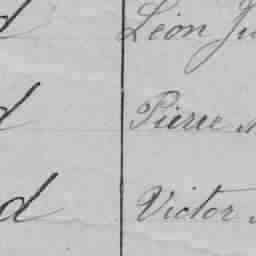 d Léon Ju
d Pierre
d Victor